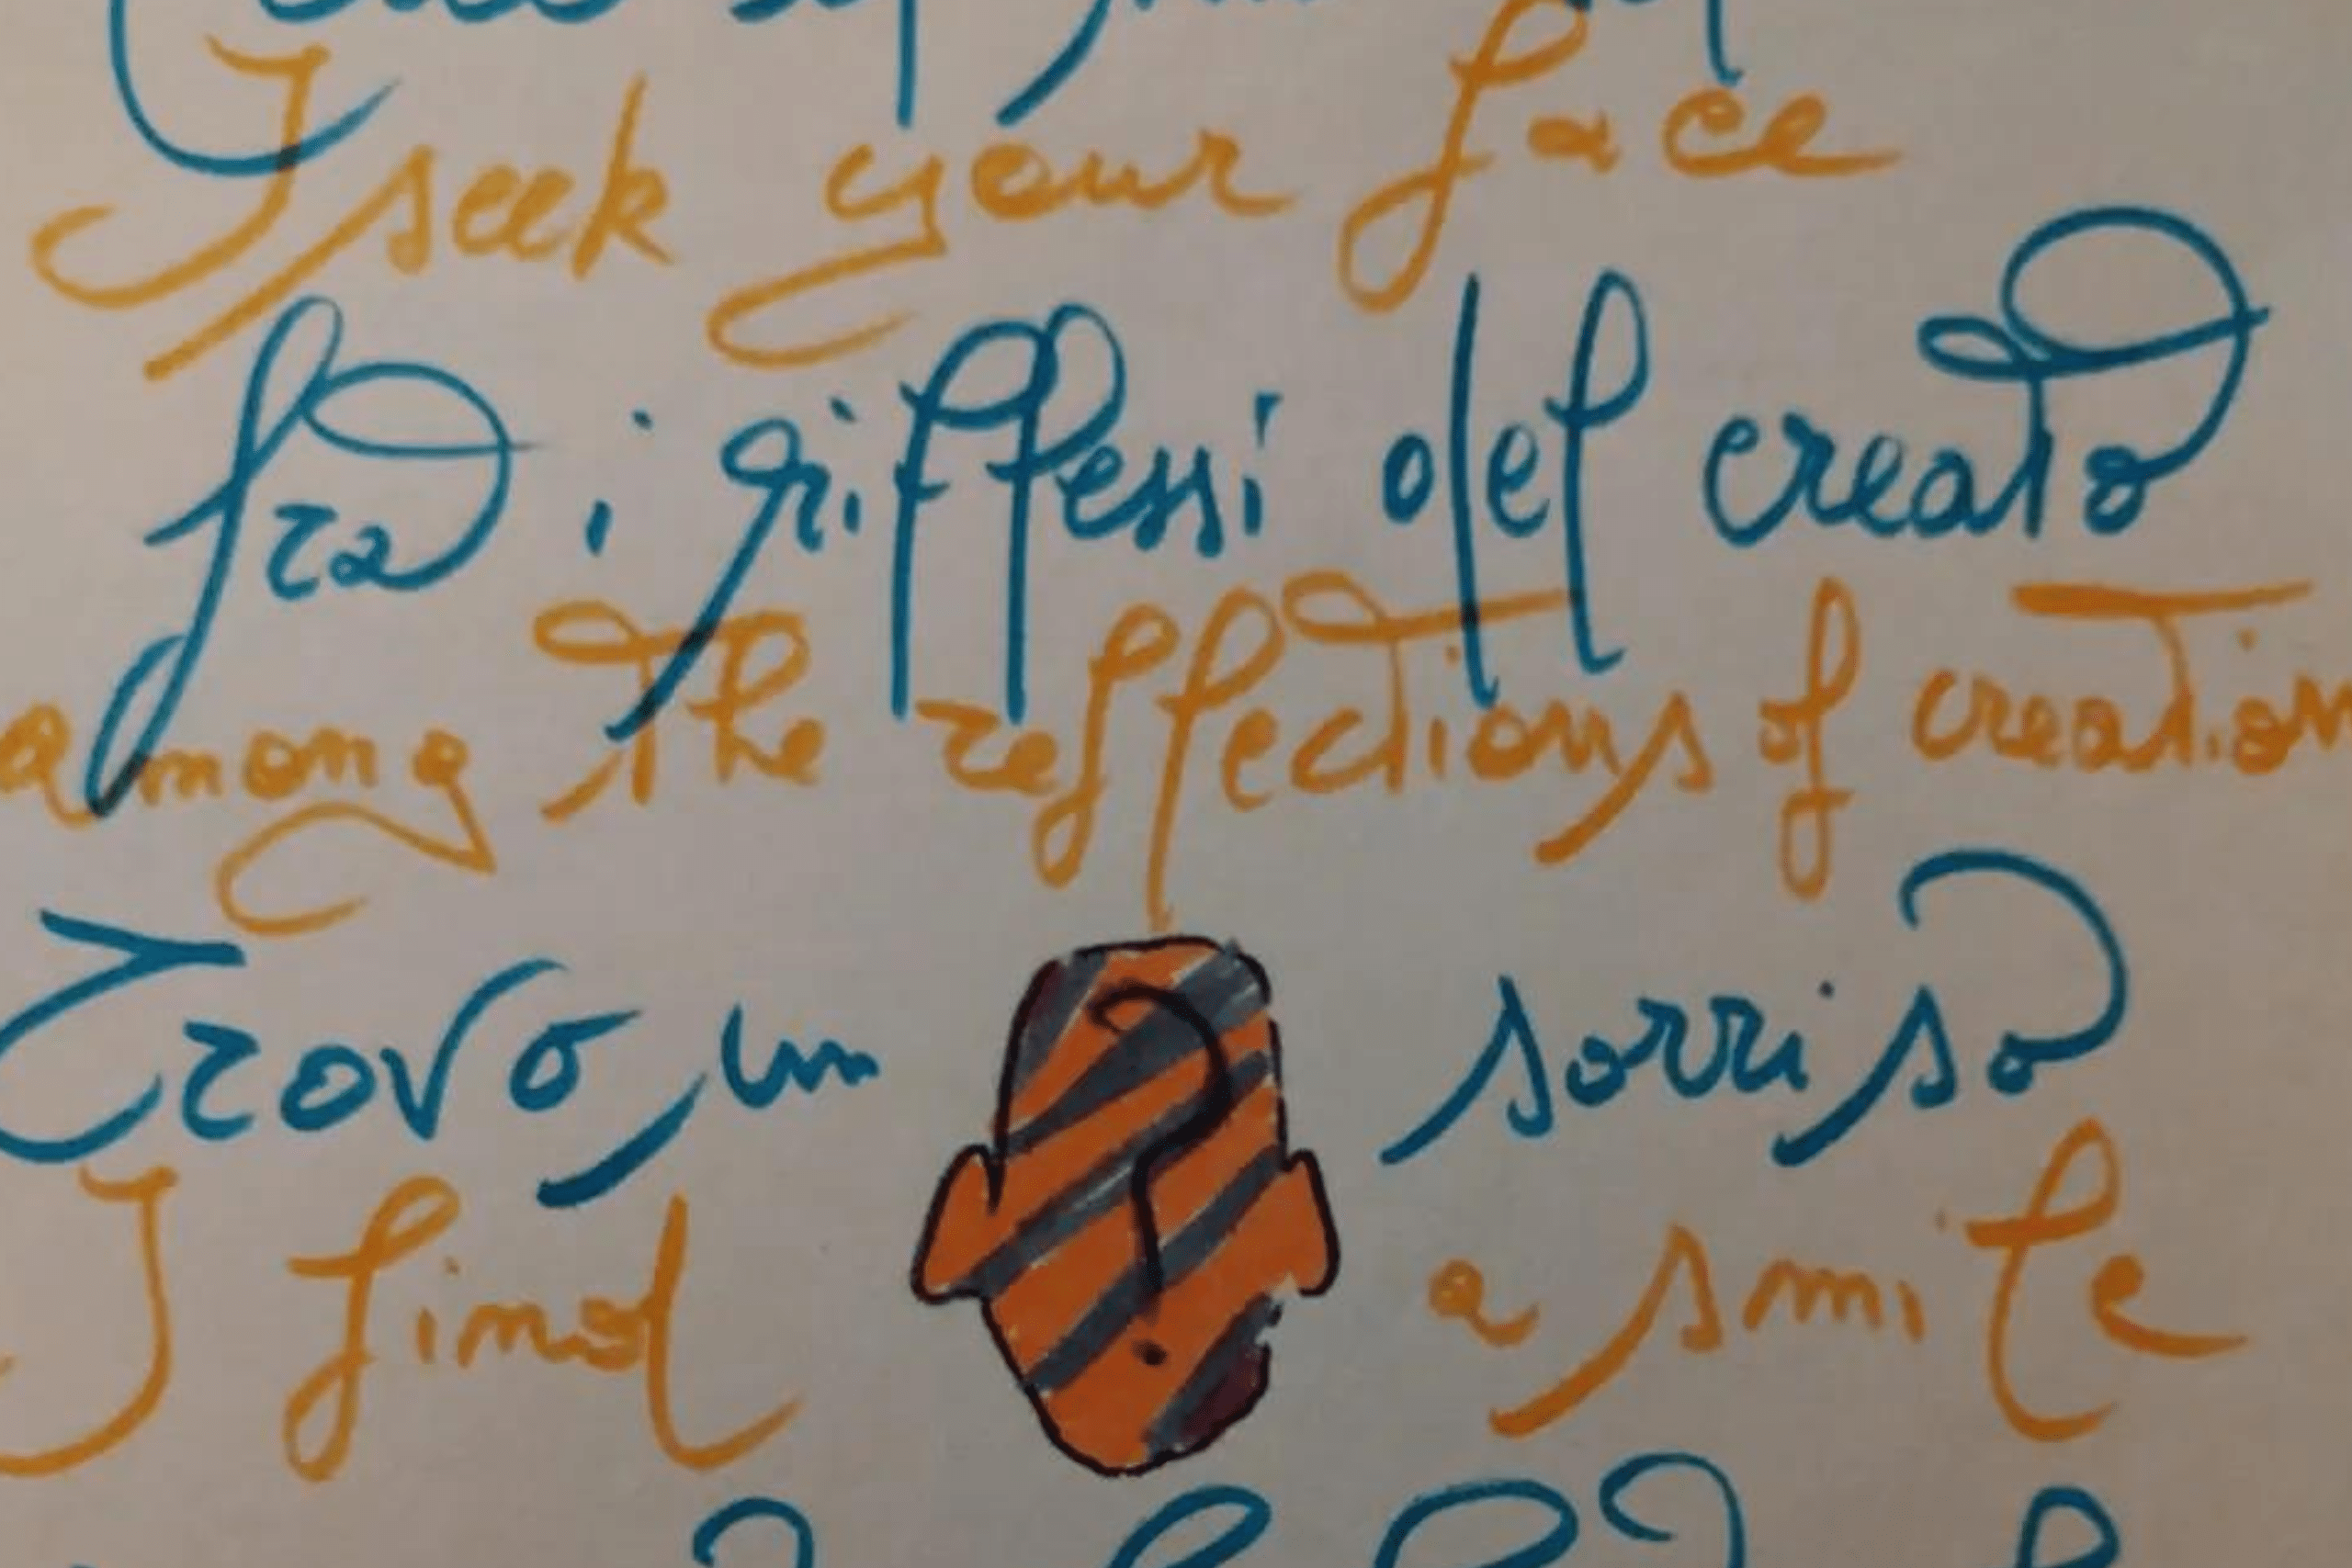 I seek your face
fra i riflessi del creato
among the reflections of creation
Trovo un sorriso
I find a smile